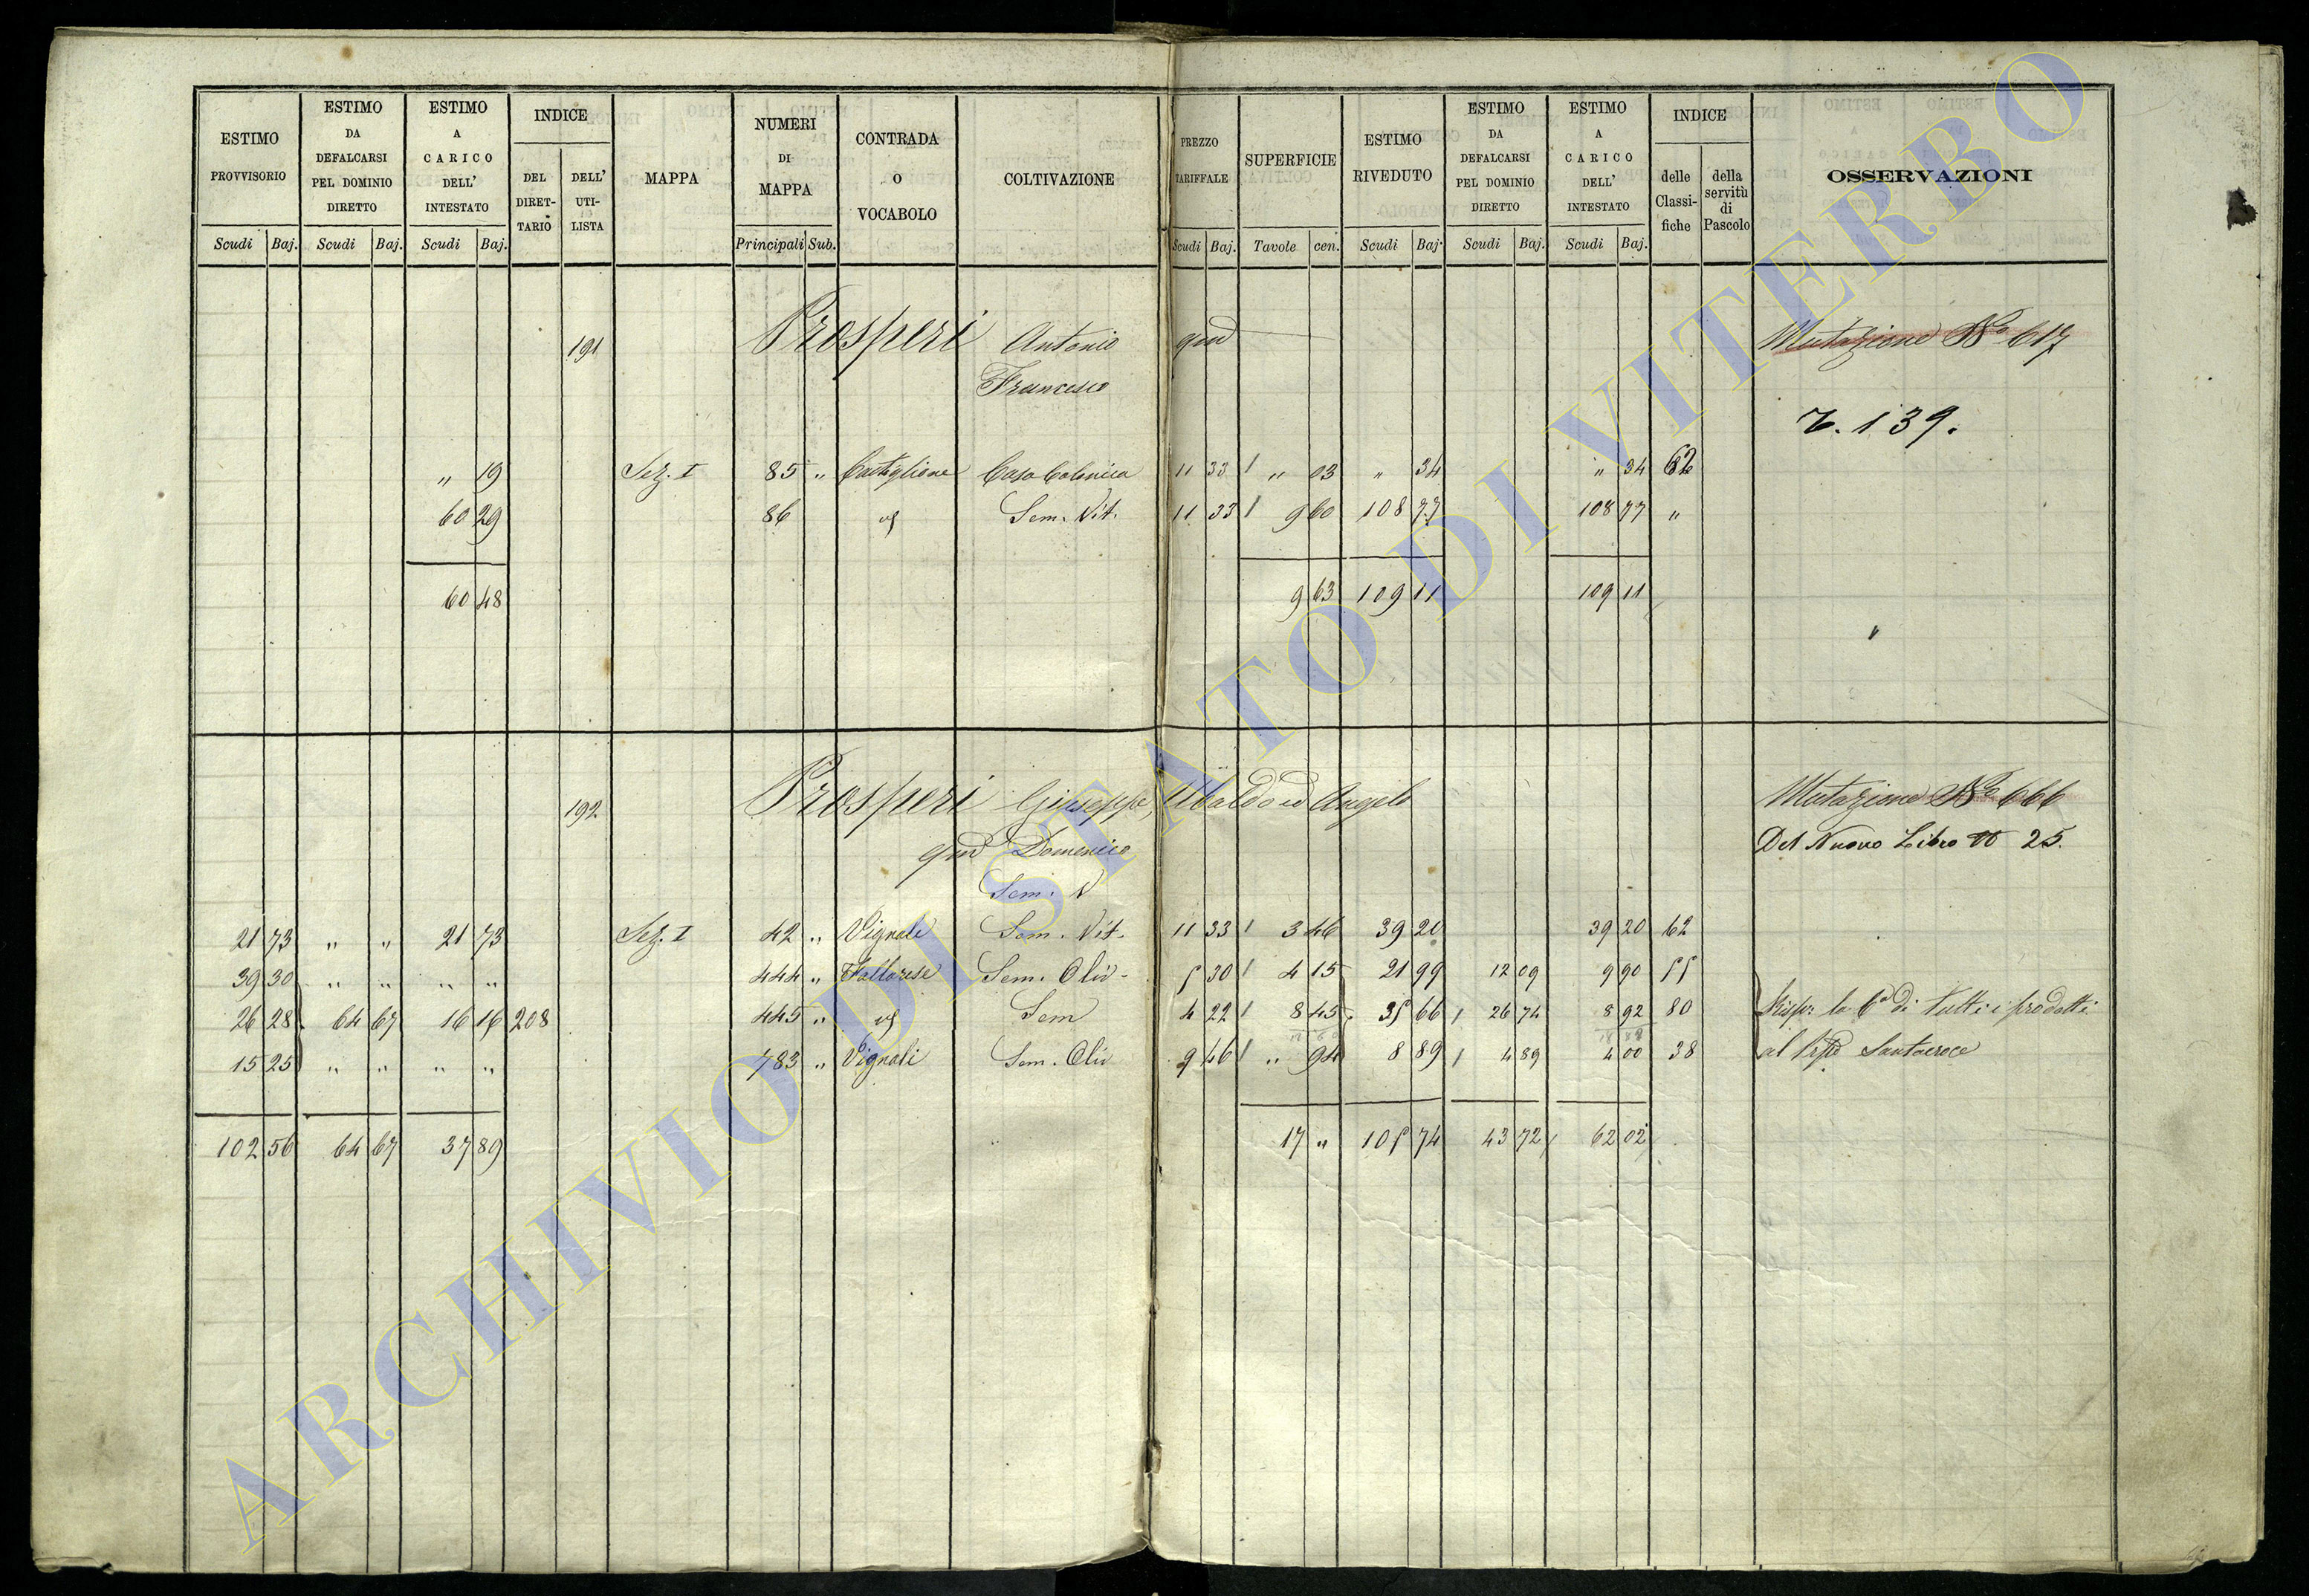 ESTIMO PROVVISORIO | ESTIMO DA DEFALCARSI PEL DOMINIO DIRETTO | ESTIMO A CARICO DELL' INTESTATO | INDICE | MAPPA | NUMERI DI MAPPA | CONTRADA O VOCABOLO | COLTIVAZIONE | PREZZO TARIFFALE | SUPERFICIE | ESTIMO RIVEDUTO | ESTIMO DA DEFALCARSI PEL DOMINIO DIRETTO | ESTIMO A CARICO DELL' INTESTATO | INDICE | OSSERVAZIONI
DEL DIRETTARIO | DELL' UTILISTA | delle Classifiche | della servitù di Pascolo
Scudi | Baj. | Scudi | Baj. | Scudi | Baj. | Principali | Sub. | Scudi | Baj. | Tavole | cen. | Scudi | Baj. | Scudi | Baj. | Scudi | Baj.
191 Prosperi Antonio qm Mutazione No 617
Francesco
139.
" 19 Sez. I 85 " Castiglione Casa Colonica 11 33 " 03 " 34 " 34 62
60 29 86 Sem. Vit. 11 33 9 60 108 77 108 77 "
60 48 9 63 109 11 109 11
192. Prosperi Giuseppe, Ubaldo ed Angelo Mutazione No 666
qm Domenico Del Nuovo Libro 25.
Sem. V
21 73 " " 21 73 Sez. I 42 " Vignale Sem. Vit. 11 33 3 46 39 20 39 20 62
39 30 " " " " 444 " Sem. Oliv. 5 30 4 15 21 99 12 09 9 90 55
26 28 64 67 16 16 208 445 " Sem 4 22 8 45 35 66 26 74 8 92 80 Risp. la 6a di tutti i prodotti
15 25 " " " " 783 " Vignali Sem. Oliv 9 46 " 94 8 89 4 89 4 00 38 al Santacroce
102 56 64 67 37 89 17 " 105 74 43 72 62 02
ARCHIVIO DI STATO DI VITERBO